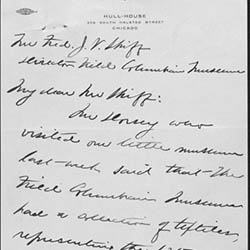 HULL-HOUSE
335 SOUTH HALSTED STREET
CHICAGO
Mr Fred. J. V. Skiff
Director Field Columbian Museum
My dear Mr Skiff:
Mr Dorsey who
visited our little museum
last week said that the
Field Columbian Museum
had a collection of textiles
representing the